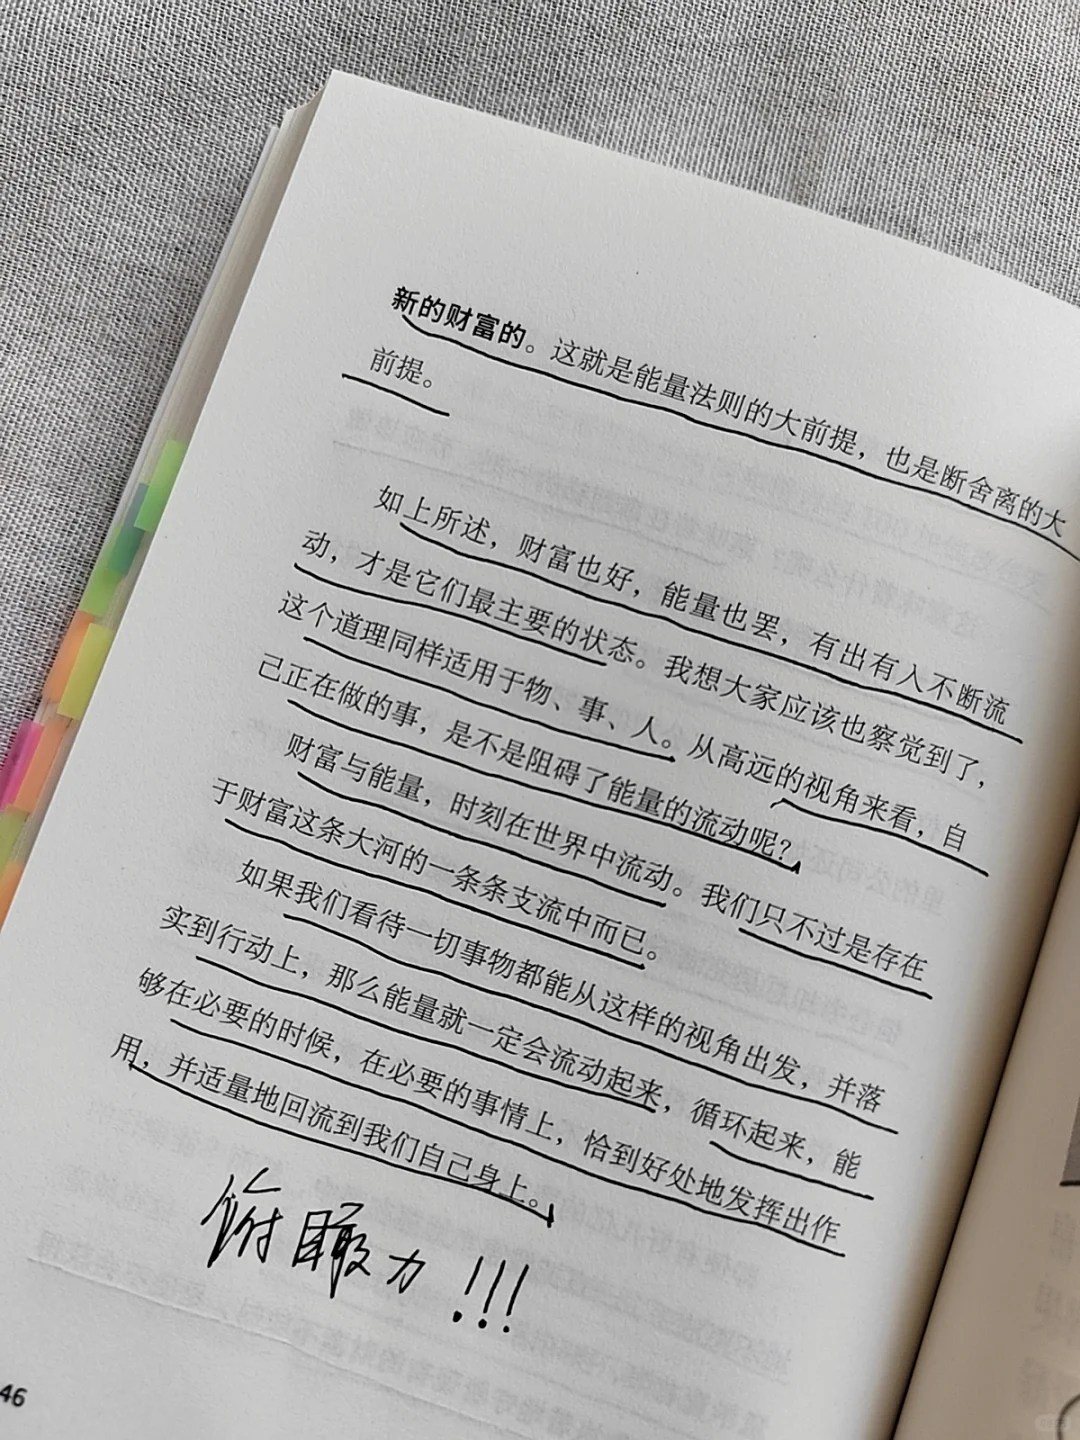 新的财富的。这就是能量法则的大前提，也是断舍离的大
前提。
如上所述，财富也好，能量也罢，有出有入不断流
动，才是它们最主要的状态。我想大家应该也察觉到了，
这个道理同样适用于物、事、人。从高远的视角来看，自
己正在做的事，是不是阻碍了能量的流动呢？
财富与能量，时刻在世界中流动。我们只不过是存在
于财富这条大河的一条条支流中而已。
如果我们看待一切事物都能从这样的视角出发，并落
实到行动上，那么能量就一定会流动起来，循环起来，能
够在必要的时候，在必要的事情上，恰到好处地发挥出作
用，并适量地回流到我们自己身上。
俯瞰力!!!
46